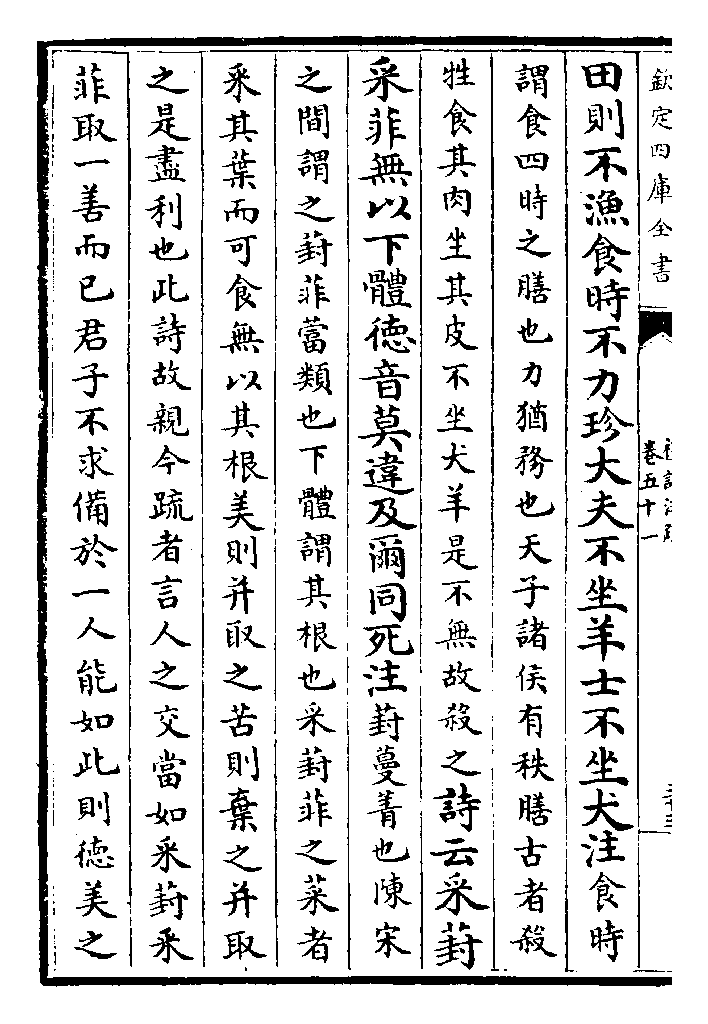 欽定四庫全書
卷五十一
田則不漁食時不力珍大夫不坐羊士不坐犬注食時
謂食四時之膳也力猶務也天子諸侯有秩膳古者殺
牲食其肉坐其皮不坐犬羊是不無故殺之詩云采葑
采菲無以下體徳音莫違及爾同死注葑蔓菁也陳宋
之間謂之葑菲葍類也下體謂其根也采葑菲之菜者
采其葉而可食無以其根美則并取之苦則棄之并取
之是盡利也此詩故親今疏者言人之交當如采葑采
菲取一善而已君子不求備於一人能如此則徳美之